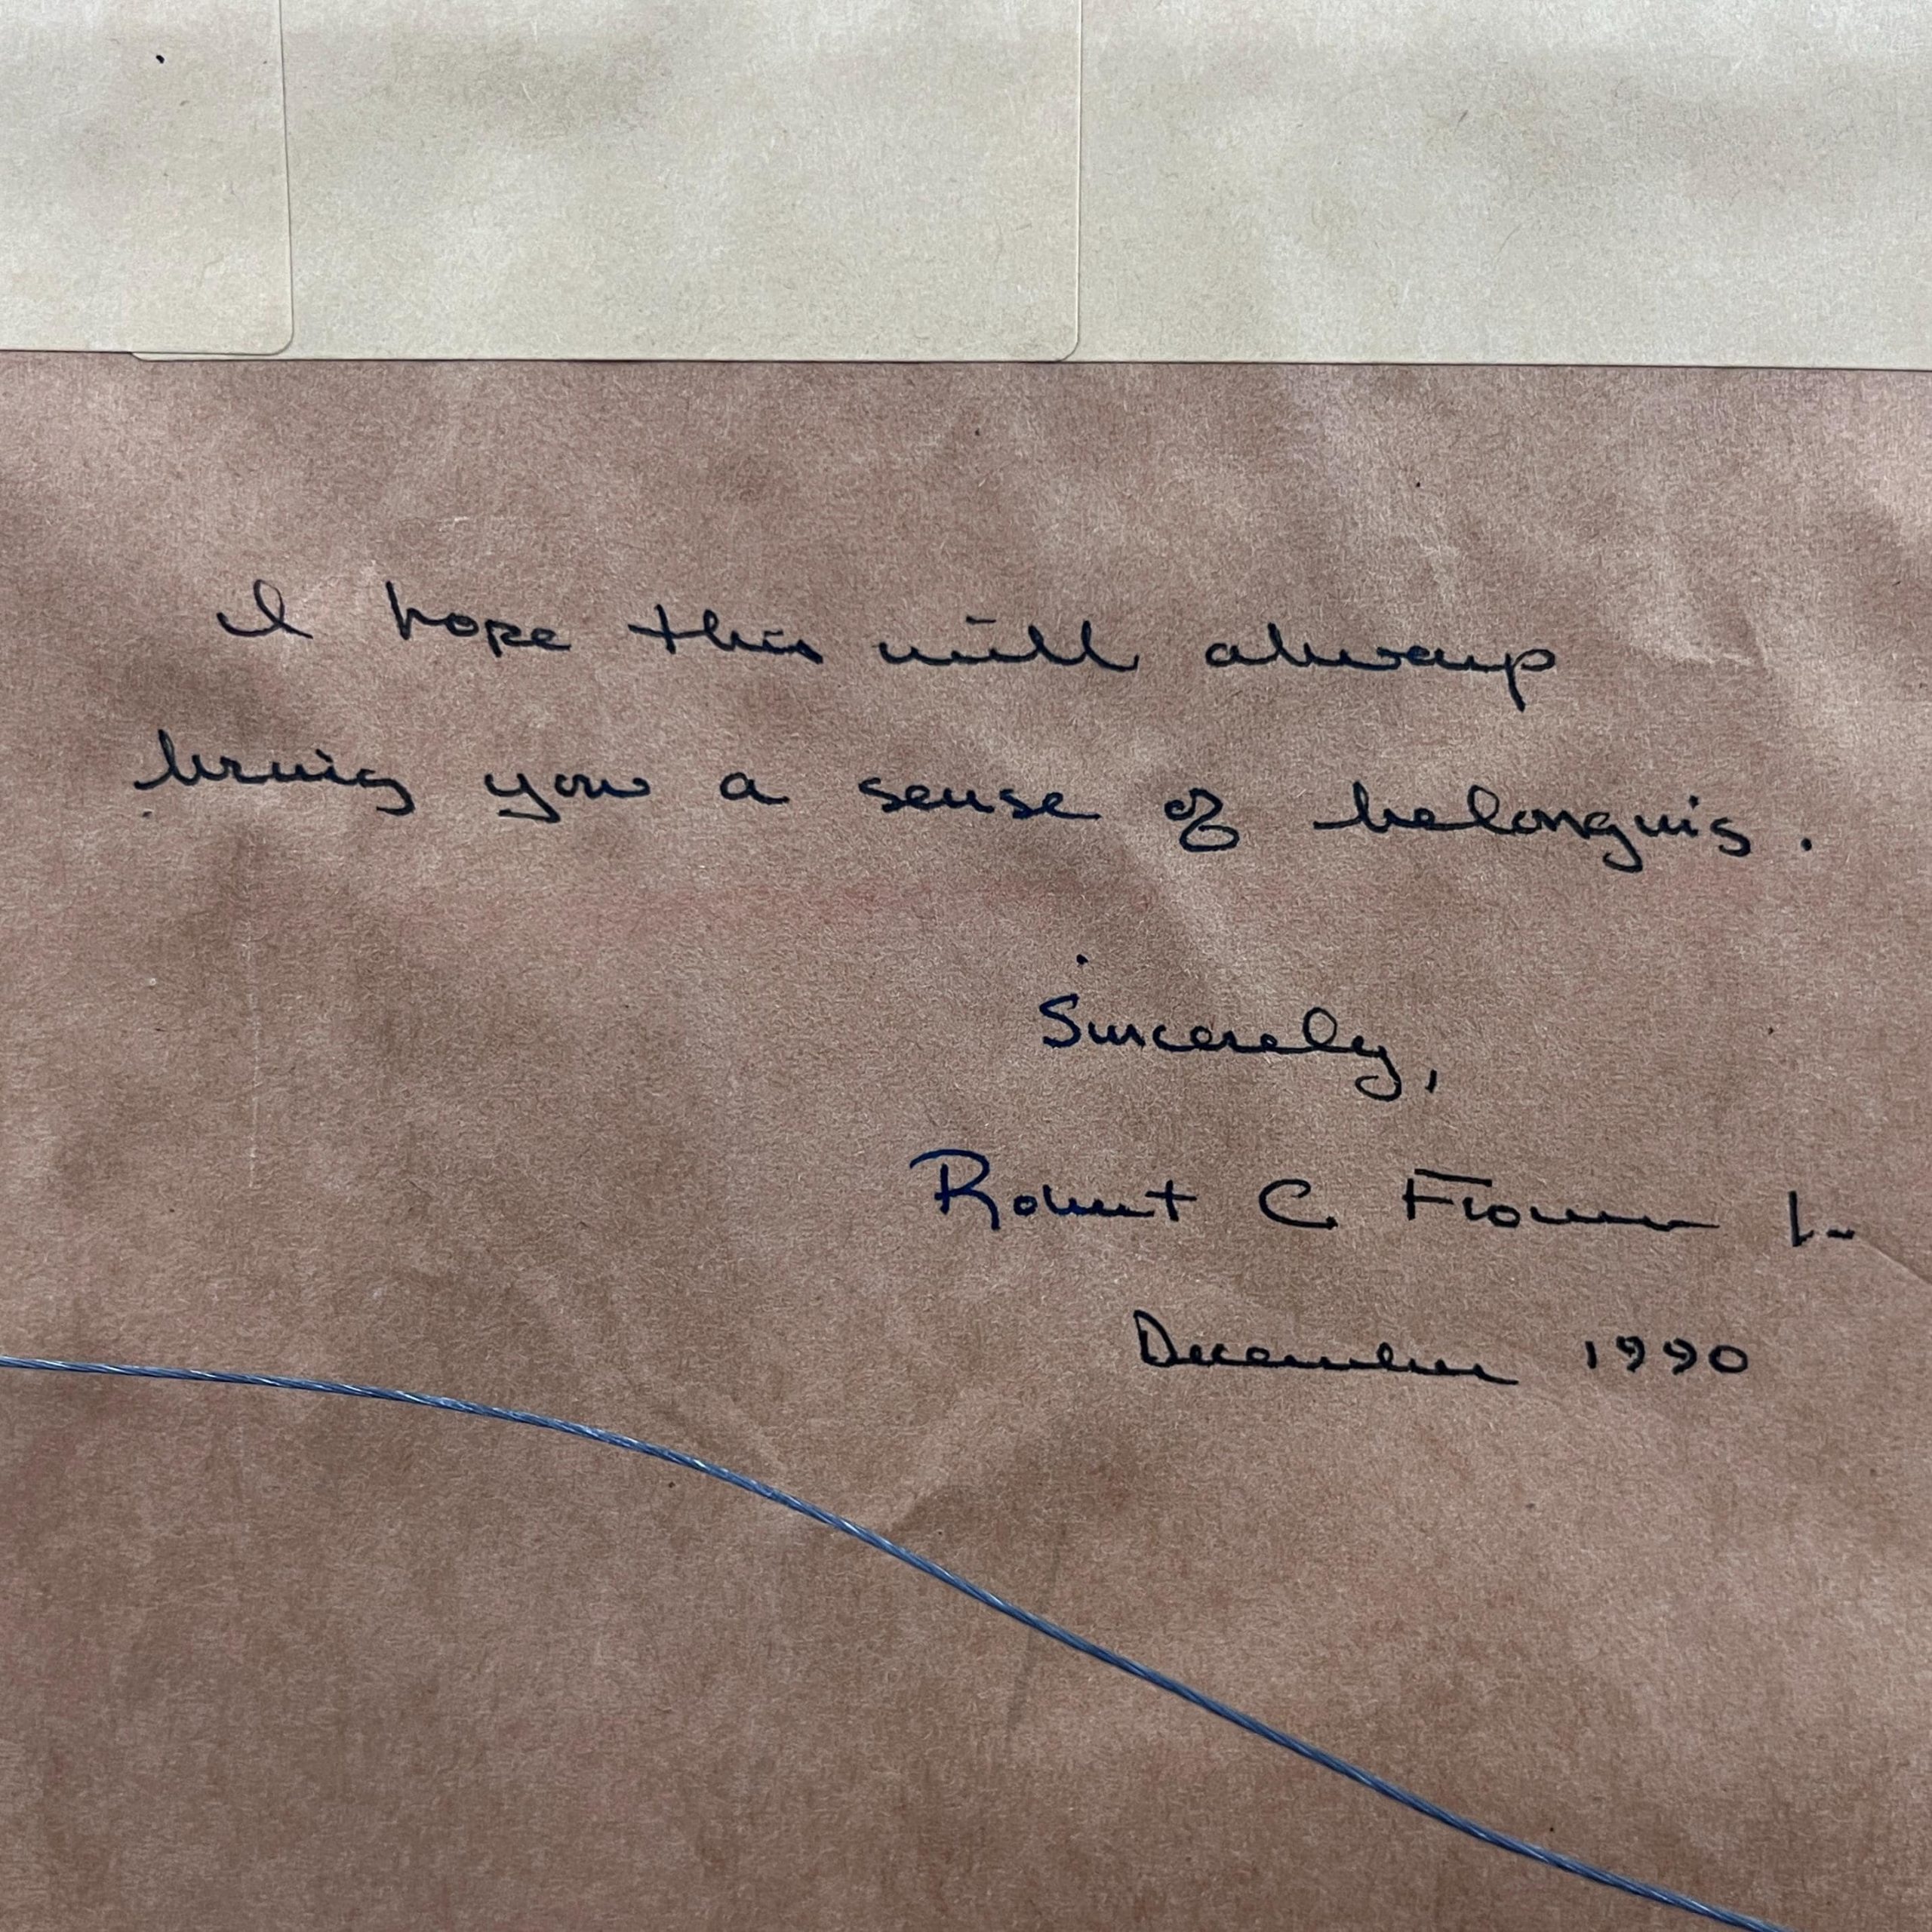 I hope this will always
bring you a sense of belonging.
Sincerely,
Robert C.
December 1990